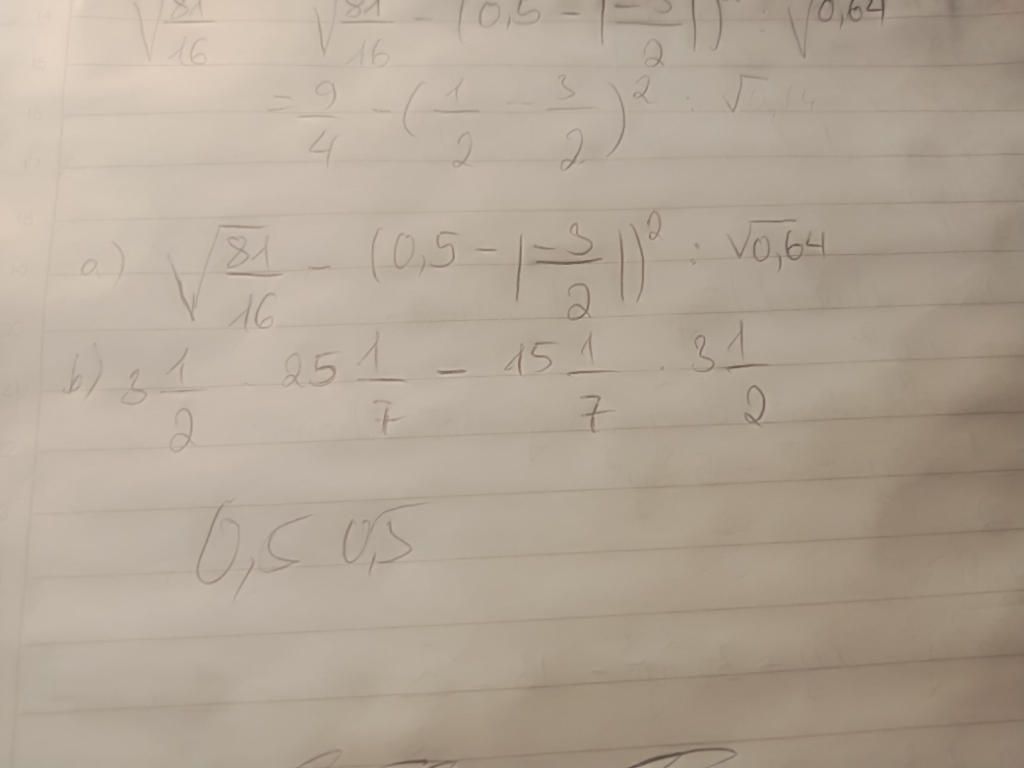 √81/16 √81/16 - (0,5 - |-3/2|) · √0,64
= 9/4 - (1/2 - 3/2)² : √
a) √81/16 - (0,5 - |-3/2|)² : √0,64
b) 3 1/2 · 25 1/7 - 15 1/7 · 3 1/2
0,5 0,5